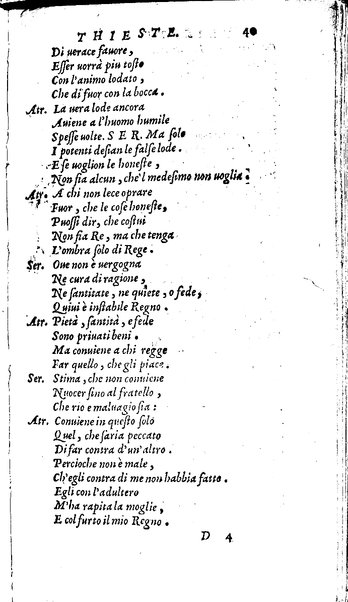 THIESTE. 40
Di uerace fauore,
Esser uorrà piu tosto
Con l'animo lodato,
Che di fuor con la bocca.
Atr. La uera lode ancora
Auiene a l'huomo humile
Spesse uolte. SER. Ma solo
I potenti desian le false lode.
E se uoglion le honeste,
Non sia alcun, che'l medesimo non uoglia.
Atr. A chi non lece oprare
Fuor, che le cose honeste,
Puossi dir, che costui
Non sia Re, ma che tenga
L'ombra solo di Rege.
Ser. Oue non è uergogna
Ne cura di ragione,
Ne santitate, ne quiete, o fede,
Quiui è instabile Regno.
Atr. Pietà, santità, e fede
Sono priuati beni.
Ma conuiene a chi regge
Far quello, che gli piace.
Ser. Stima, che non conuiene
Nuocer sino al fratello,
Che rio e maluagio sia:
Atr. Conuiene in questo solo
Quel, che saria peccato
Di far contra d'un'altro.
Percioche non è male,
Ch'egli contra di me non habbia fatto.
Egli con l'adultero
M'ha rapita la moglie,
E col furto il mio Regno.
D 4